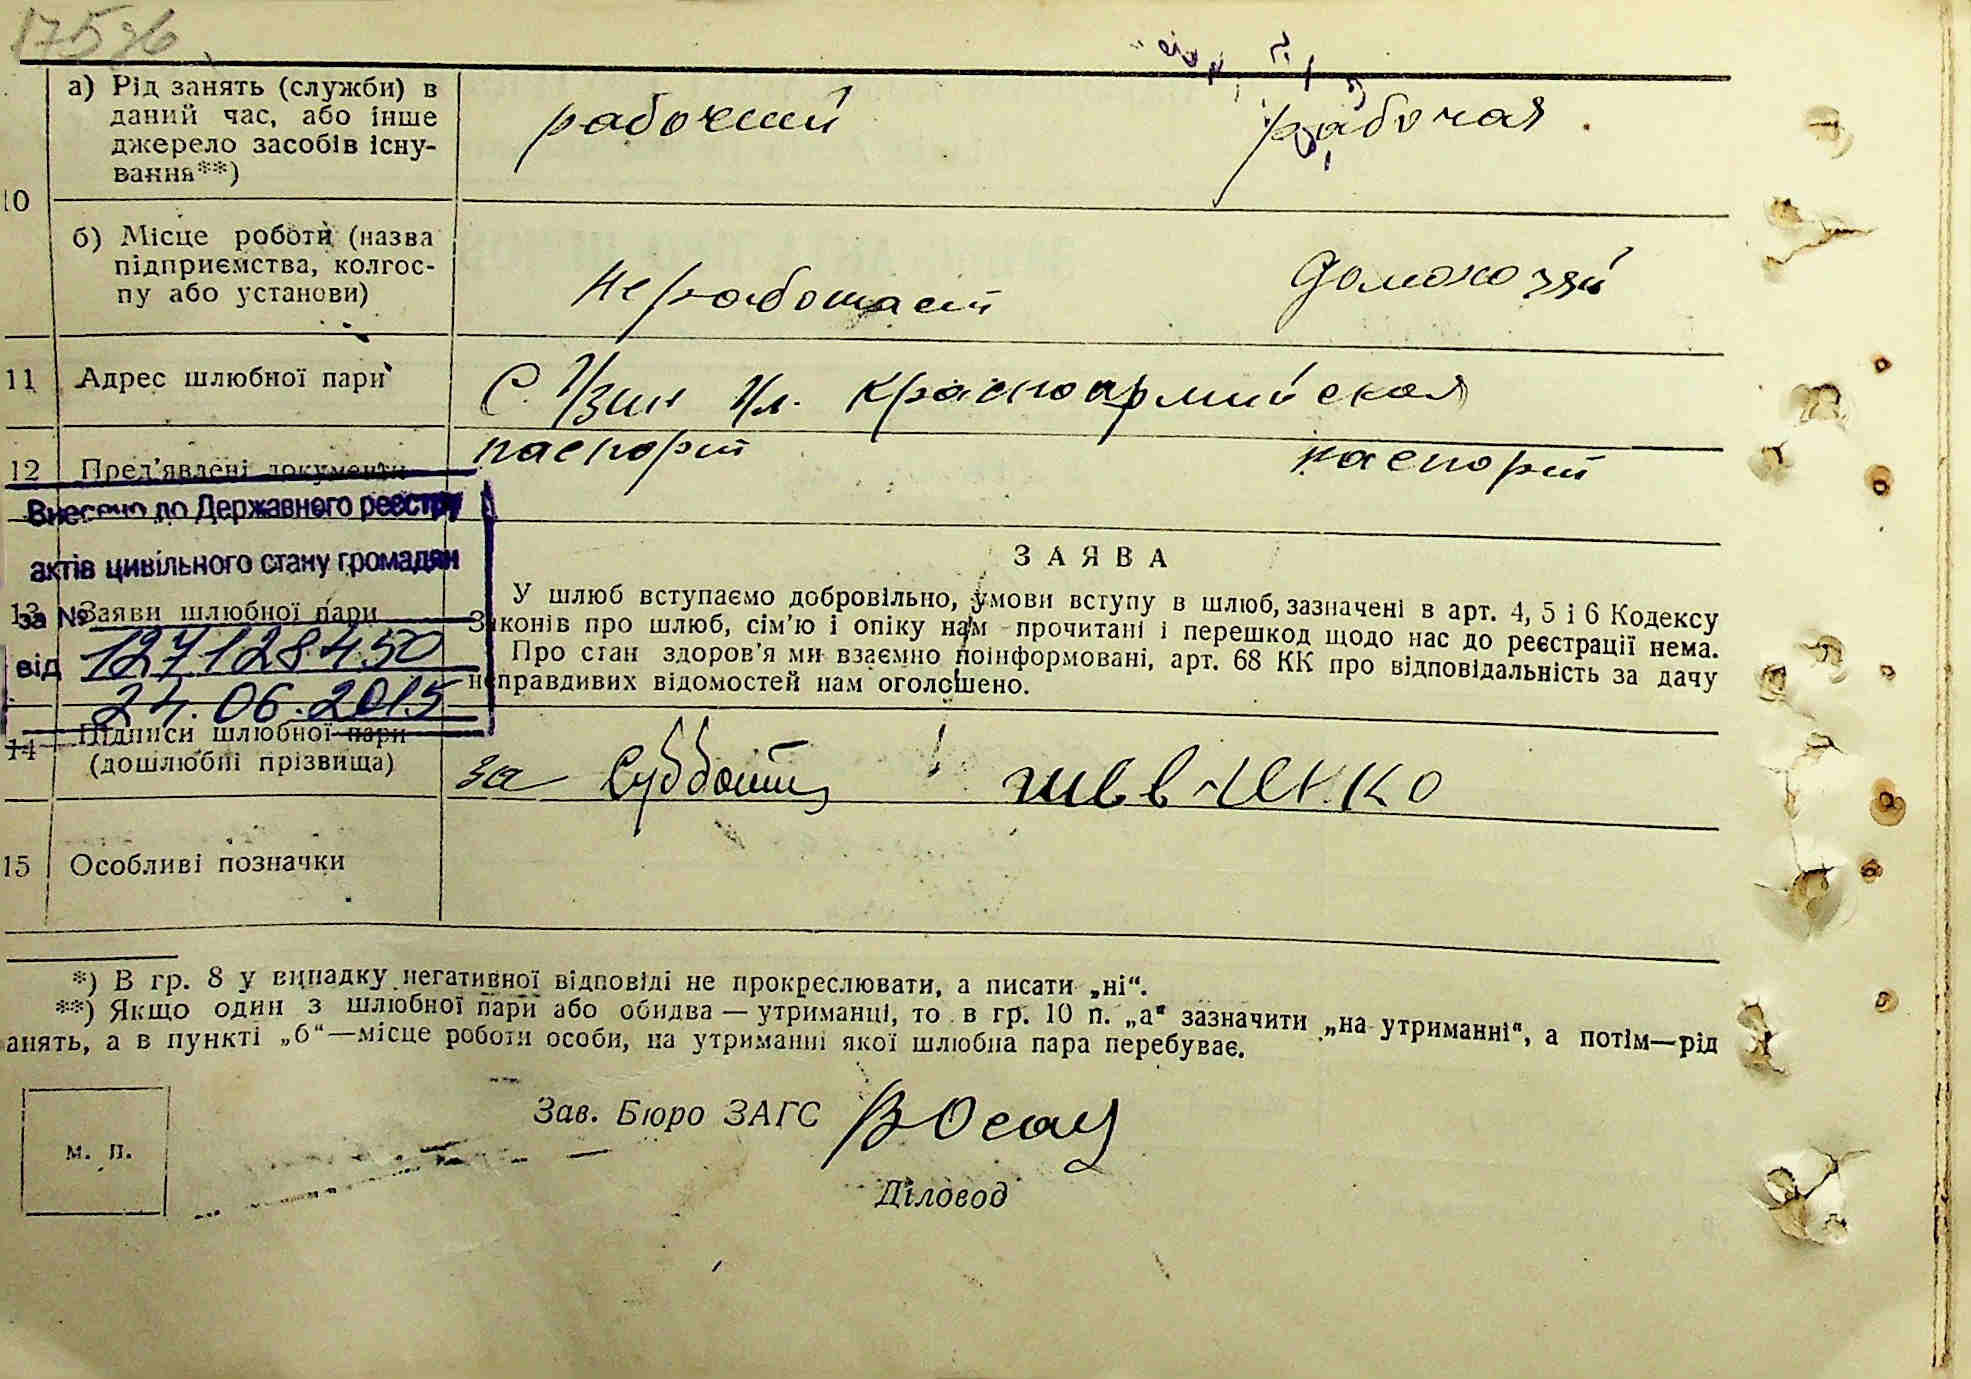 17526
а) Рід занять (служби) в
даний час, або інше
джерело засобів існу-
вання**)
рабочий
рабочая
10
б) Місце роботи (назва
підприємства, колгос-
пу або установи)
не работает
Домохозяй
11 Адрес шлюбної пари
С. Узин Ул. Красноармийская
12 Пред'явлені документи
паспорт
паспорт
Внесено до Державного реєстру
актів цивільного стану громадян
за №
127128450
від
24.06.2015
13 Заяви шлюбної пари
ЗАЯВА
У шлюб вступаємо добровільно, умови вступу в шлюб, зазначені в арт. 4, 5 і 6 Кодексу
Законів про шлюб, сім'ю і опіку нам прочитані і перешкод щодо нас до реєстрації нема.
Про стан здоров'я ми взаємно поінформовані, арт. 68 КК про відповідальність за дачу
неправдивих відомостей нам оголошено.
14 Підписи шлюбної пари
(дошлюбні прізвища)
за Субботи
шевченко
15 Особливі позначки
*) В гр. 8 у випадку негативної відповіді не прокреслювати, а писати „ні“.
**) Якщо один з шлюбної пари або обидва — утриманці, то в гр. 10 п. „а“ зазначити „на утриманні“, а потім—рід
анять, а в пункті „б“—місце роботи особи, на утриманні якої шлюбна пара перебуває.
м. п.
Зав. Бюро ЗАГС
Діловод